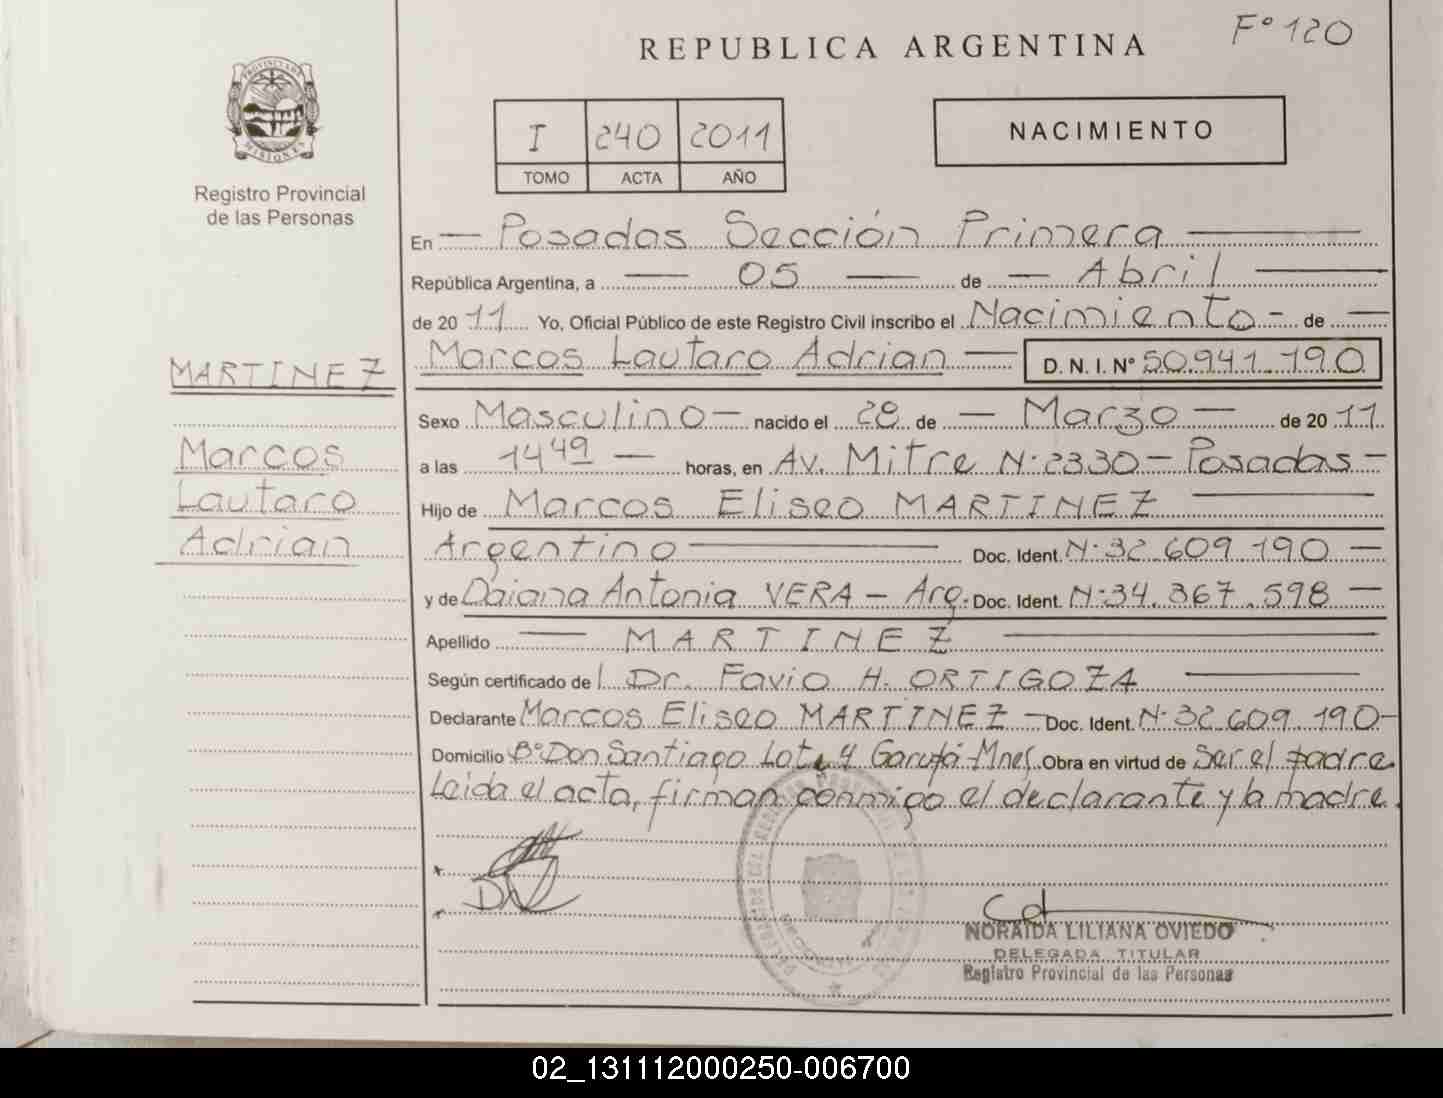 Fº 120
REPUBLICA ARGENTINA
PROVINCIA DE MISIONES
I 240 2011
TOMO ACTA AÑO
NACIMIENTO
Registro Provincial
de las Personas
En — Posadas Sección Primera —
República Argentina, a — 05 — de — Abril —
de 20 11 Yo, Oficial Público de este Registro Civil inscribo el Nacimiento - de —
Marcos Lautaro Adrian — D. N. I. Nº 50.941.190
MARTINEZ
Marcos
Lautaro
Adrian
Sexo Masculino — nacido el 28 de — Marzo — de 20 11
a las 14 49 — horas, en Av. Mitre N· 2330 — Posadas —
Hijo de Marcos Eliseo MARTINEZ —
Argentino — Doc. Ident. N· 32.609.190 —
y de Daiana Antonia VERA — Arg. Doc. Ident. N· 34.367.598 —
Apellido — MARTINEZ —
Según certificado de l Dr. Favio H. ORTIGOZA —
Declarante Marcos Eliseo MARTINEZ — Doc. Ident. N· 32.609.190 -
Domicilio Bº Don Santiago Lote 4 Garupá - Mnes. Obra en virtud de ser el padre.
Leida el acta, firman conmigo el declarante y la madre.
NORAIDA LILIANA OVIEDO
DELEGADA TITULAR
Registro Provincial de las Personas
02_131112000250-006700